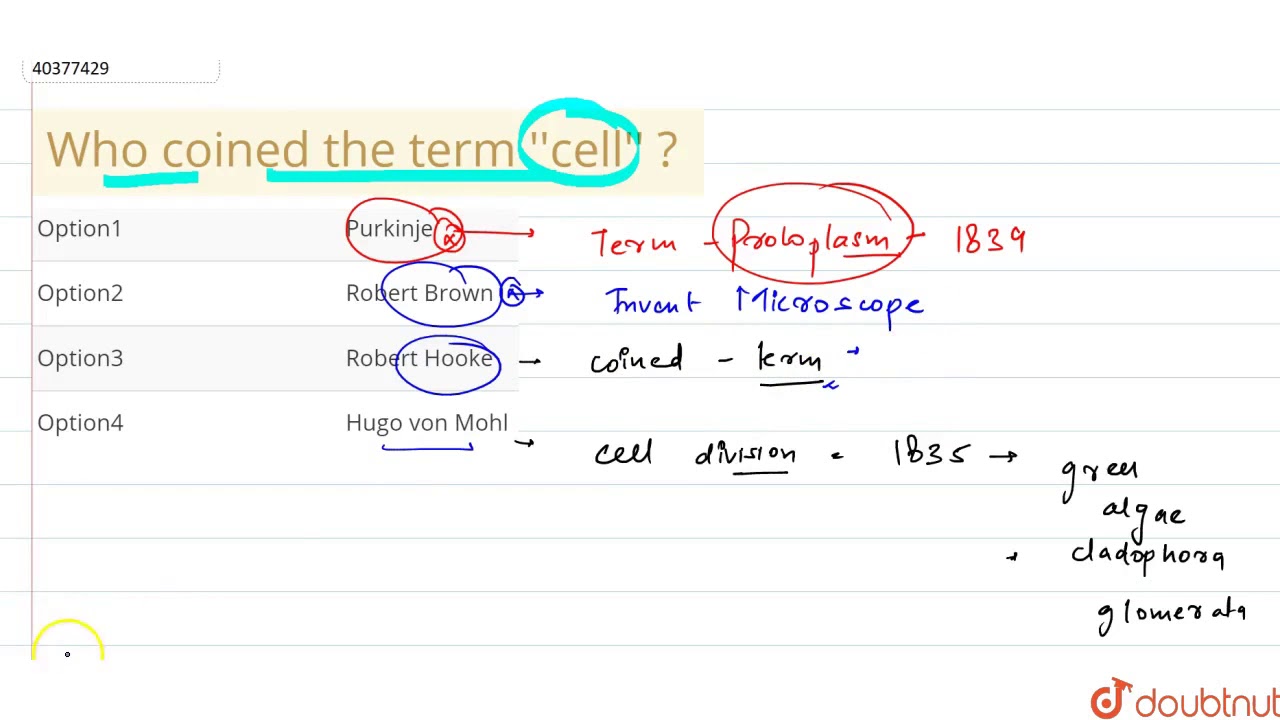 40377429
Who coined the term "cell" ?
Option1 Purkinje → Term - Protoplasm - 1839
Option2 Robert Brown → Invent Microscope
Option3 Robert Hooke → coined - term →
Option4 Hugo von Mohl → cell division - 1835 → green
algae
cladophora
glomerata
doubtnut